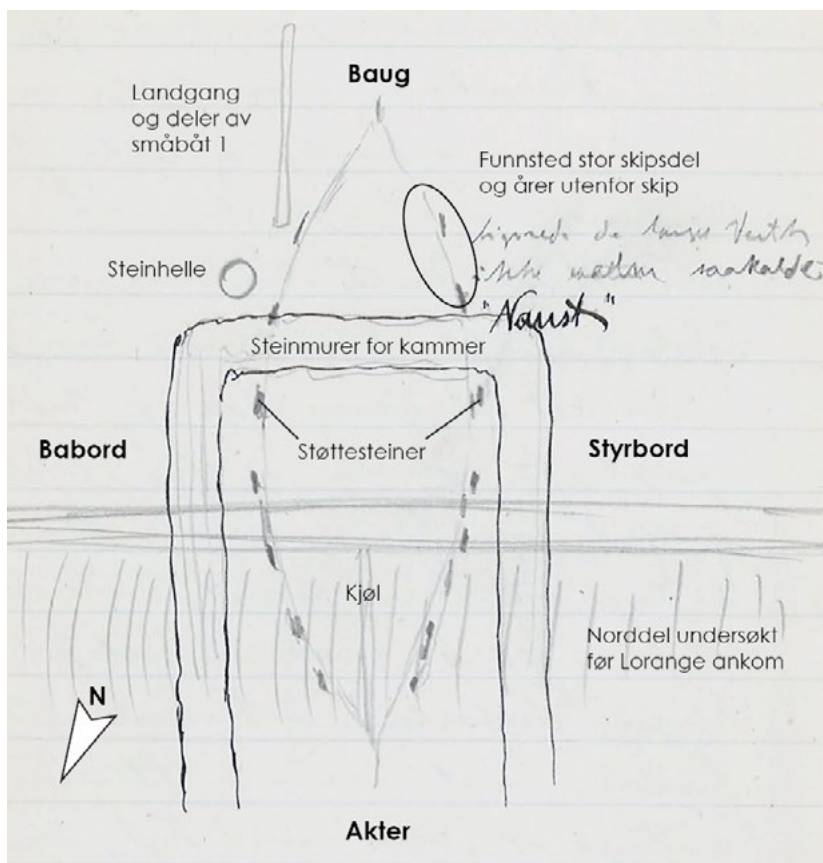 Baug
Landgang
og deler av
småbåt 1
Funnsted stor skipsdel
og årer utenfor skip
de
ikke saakaldt
"Naust"
Steinhelle
Steinmurer for kammer
Støttesteiner
Babord
Styrbord
Kjøl
Norddel undersøkt
før Lorange ankom
N
Akter